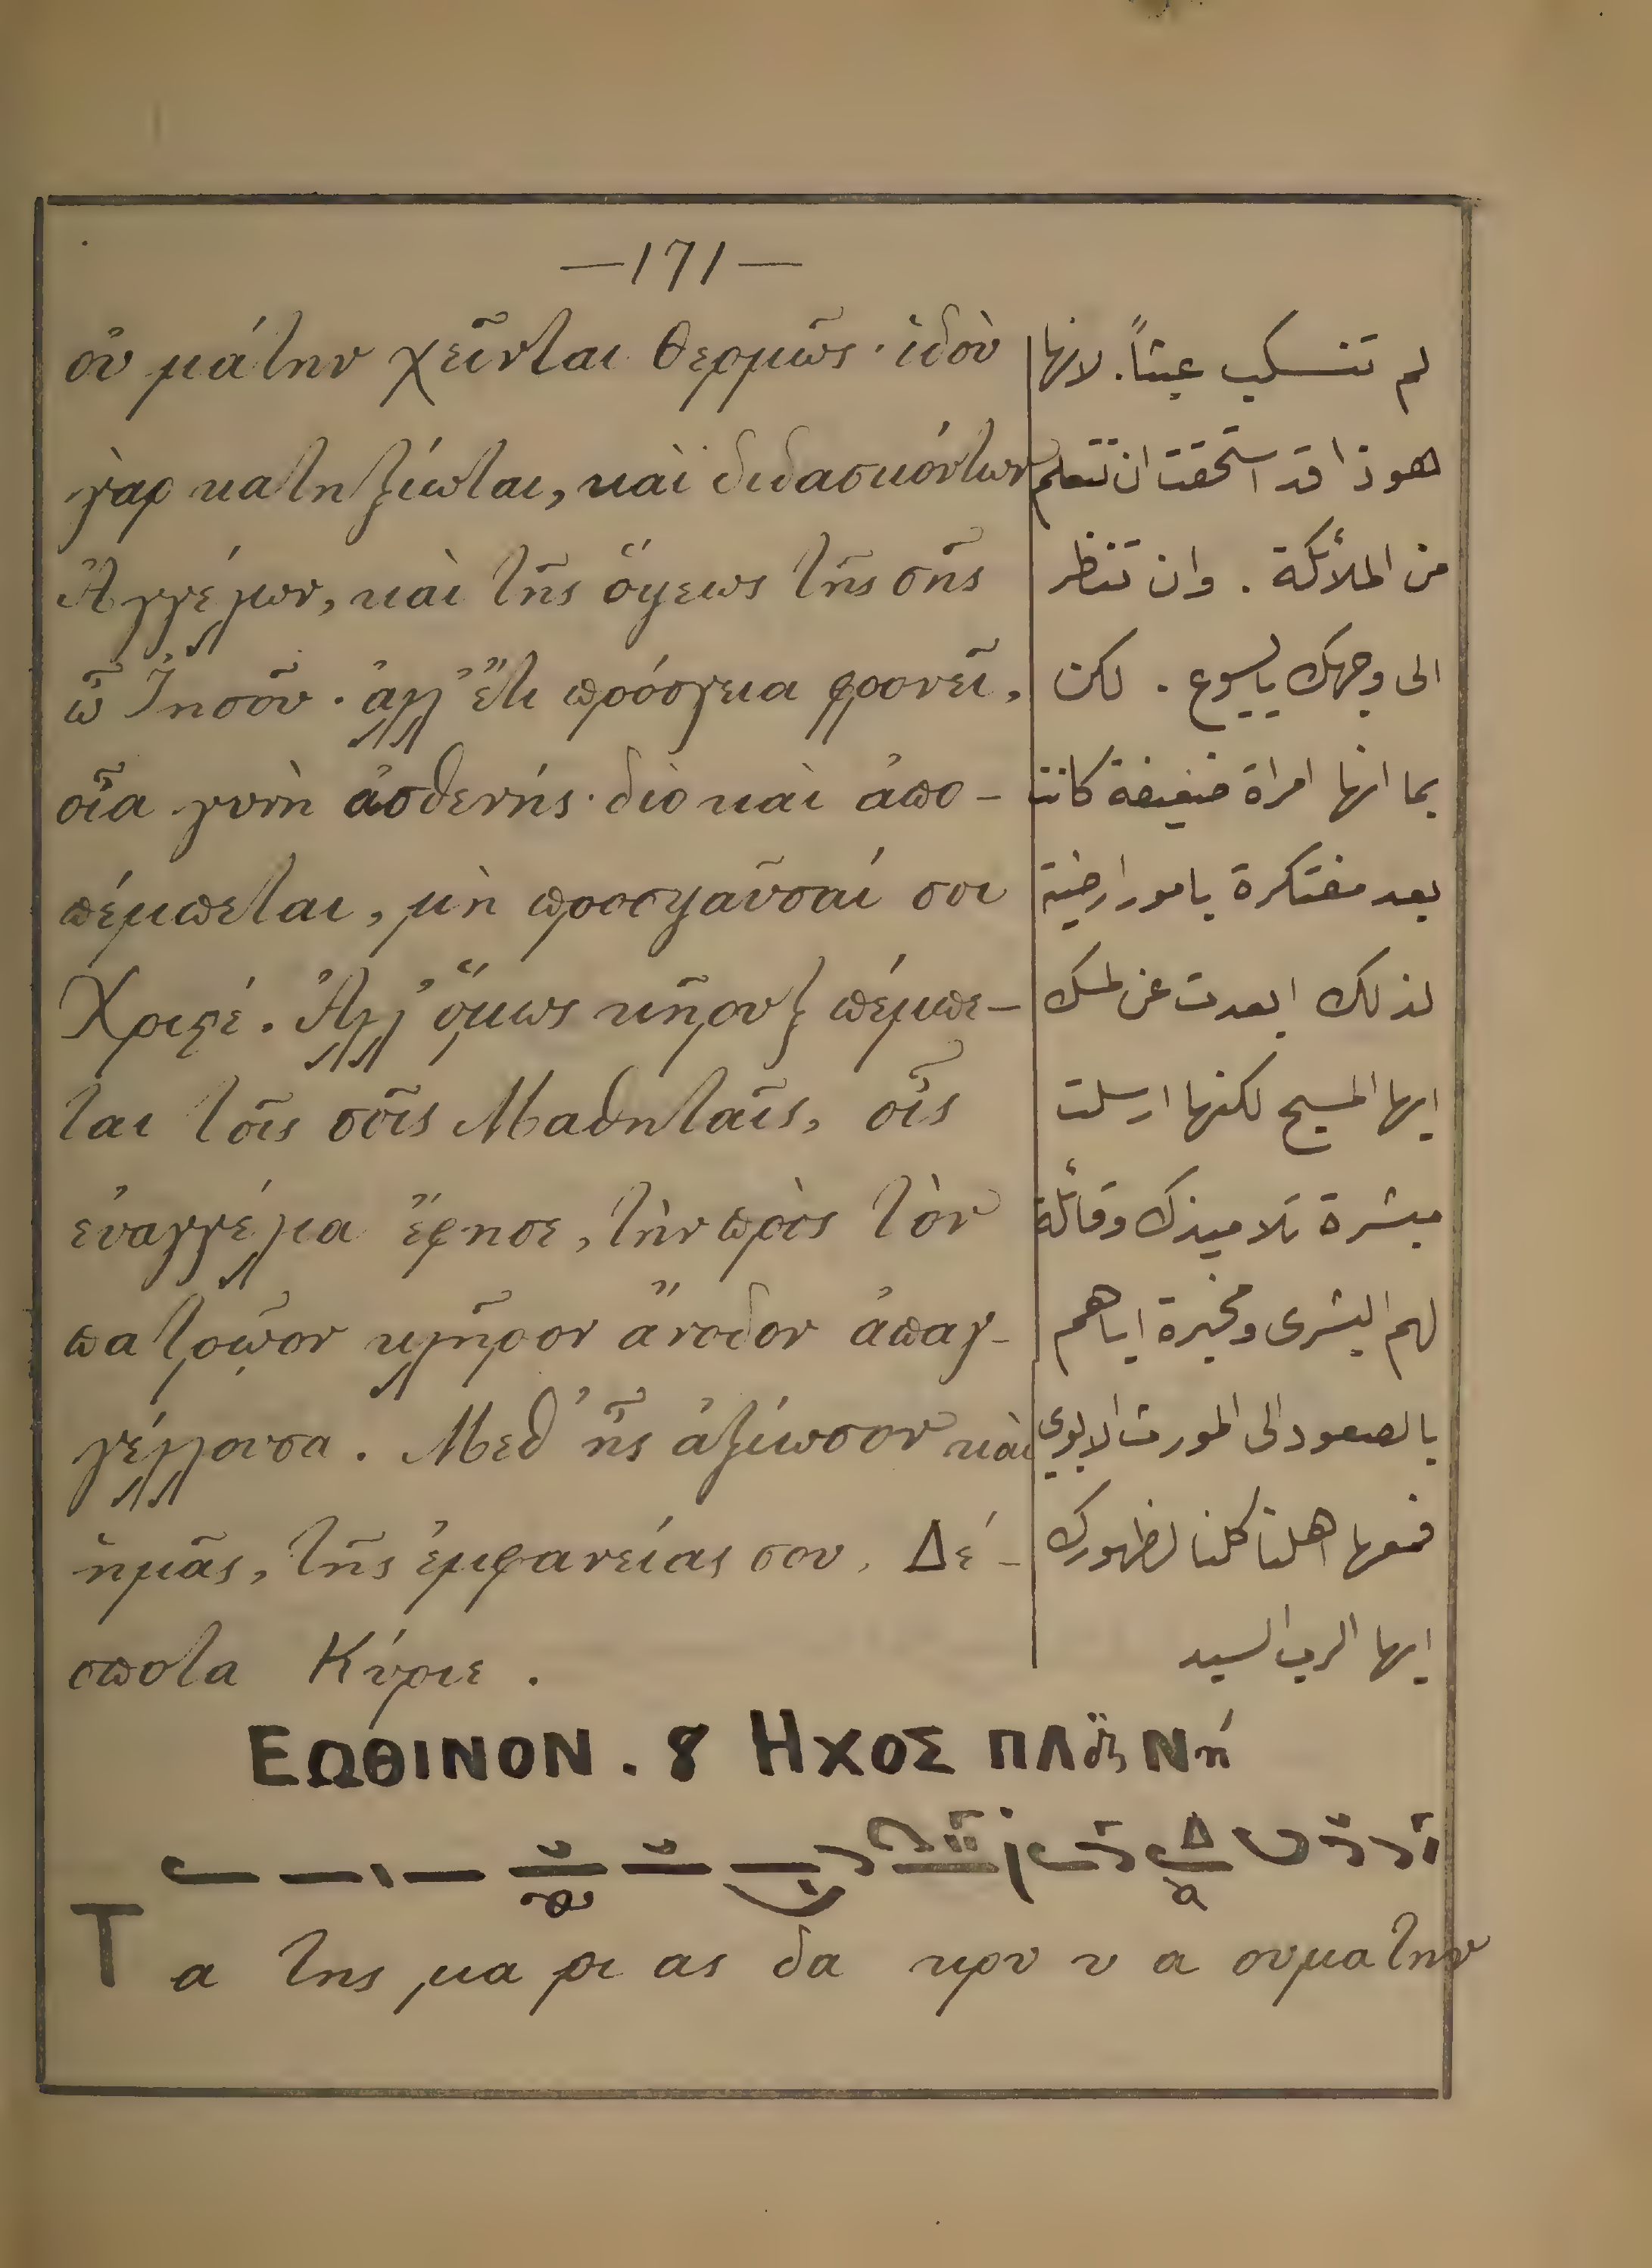 —171—
οὐ μάτην χεῖνται θερμῶς· ἰδοὺ
γὰρ κατηξίωται, καὶ διδασκόντων
Ἀγγέλων, καὶ τῆς ὄψεως τῆς σῆς
ὦ Ἰησοῦ· ἀλλ' ἔτι πρόσγεια φρονεῖ,
οἷα γυνὴ ἀσθενής· διὸ καὶ ἀπο-
πέμπεται, μὴ προσψαῦσαί σοι
Χριϛέ. Ἀλλ' ὅμως κῆρυξ πέμπε-
ται τοῖς σοῖς Μαθηταῖς, οἷς
εὐαγγέλια ἔφησε, τὴν πρὸς τὸν
πατρῷον κλῆρον ἄνοδον ἀπαγ-
γέλλουσα. Μεθ' ἧς ἀξίωσον καὶ
ἡμᾶς, τῆς ἐμφανείας σου, Δέ-
σποτα Κύριε.
لم تنسكب عبثاً. لانها
هوذا قد استحقت ان تتعلم
من الملائكة. وان تنظر
الى وجهك يايسوع. لكن
بما انها امراة ضعيفة كانت
بعد مفتكرة بامور ارضية
لذلك ابعدت عن لمسك
ايها المسيح لكنها ارسلت
مبشرة تلاميذك وقائلة
لهم البشرى ومخبرة اياهم
بالصعود الى المورث الابوي
فمعها اهلنا كلنا لظهورك
ايها الرب السيد
ΕΩΘΙΝΟΝ. 8 ΗΧΟΣ ΠΛ Νη
Τα της μα ρι ας δα κρυ υ α ουματην